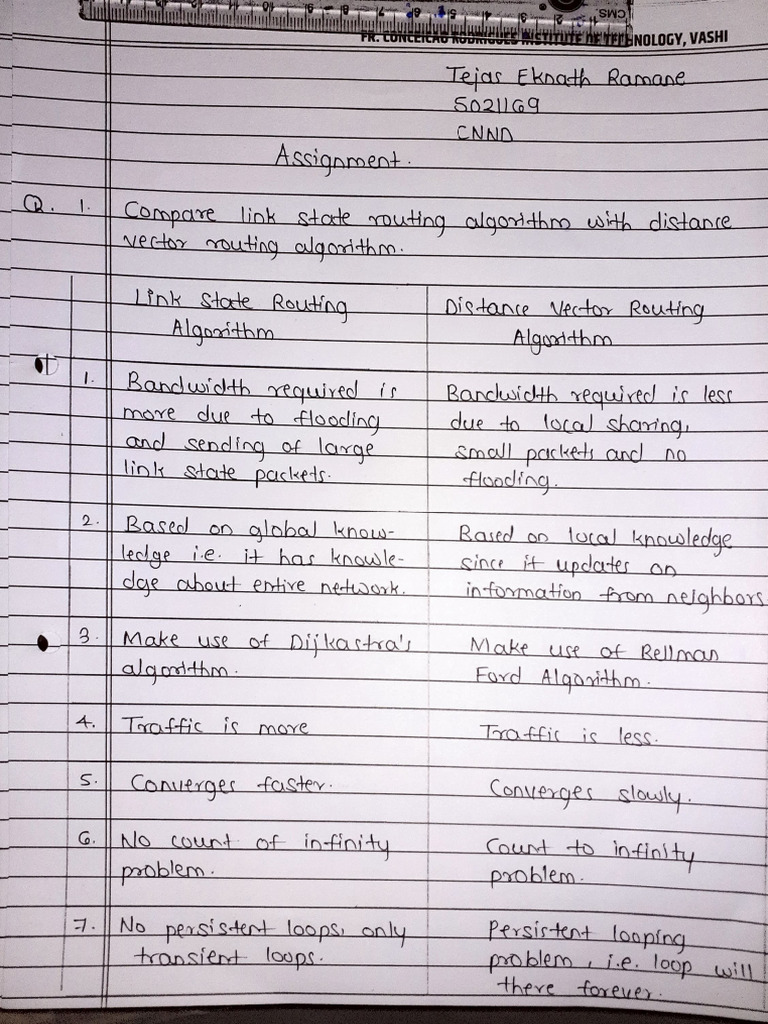 CMS
FR. CONCEICAO RODRIGUES INSTITUTE OF TECHNOLOGY, VASHI
Tejas Eknath Ramane
5021169
CNND
Assignment.
Q. 1. Compare link state routing algorithm with distance
vector routing algorithm.
Link State Routing
Algorithm
Distance Vector Routing
Algorithm
1. Bandwidth required is
more due to flooding
and sending of large
link state packets.
Bandwidth required is less
due to local sharing,
small packets and no
flooding.
2. Based on global know-
ledge i.e. it has knowle-
dge about entire network.
Based on local knowledge
since it updates on
information from neighbors
3. Make use of Dijkastra's
algorithm.
Make use of Bellman
Ford Algorithm.
4. Traffic is more
Traffic is less.
5. Converges faster.
Converges slowly.
6. No count of infinity
problem.
Count to infinity
problem.
7. No persistent loops, only
transient loops.
Persistent looping
problem, i.e. loop will
there forever.